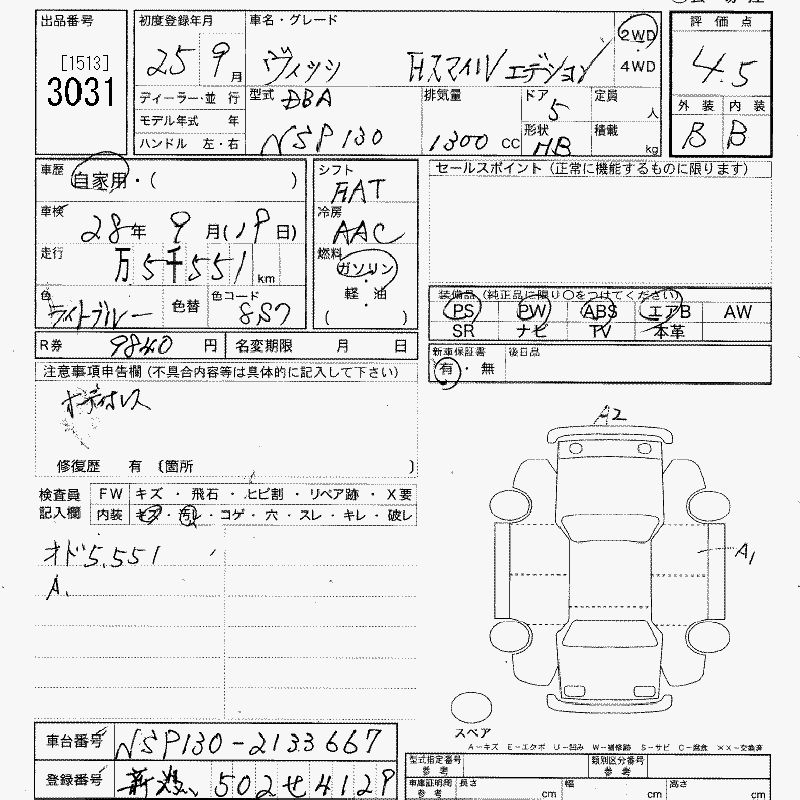 出品番号
[1513]
3031
初度登録年月
25 9月
車名・グレード
ヴィッツ Fスマイルエディション
2WD
4WD
評価点
4.5
外装 内装
B B
ディーラー・並行
モデル年式 年
ハンドル 左・右
型式 DBA
NSP130
排気量
1300 cc
ドア 5
形状 HB
定員 人
積載 kg
車歴 自家用・( )
車検 28年 9月(19日)
走行 万5千551km
色 ライトブルー 色替 色コード 8S7
シフト
FAT
冷房
AAC
燃料
ガソリン
・
軽・油
( )
セールスポイント (正常に機能するものに限ります)
装備品 (純正品に限り○をつけてください)
PS PW ABS エアB AW
SR ナビ TV 本革
R券 9840円 名変期限 月 日
新車保証書 後日品
有・無
注意事項申告欄 (不具合内容等は具体的に記入して下さい)
修復歴 有 〔箇所 〕
検査員記入欄
FW キズ・飛石・ヒビ割・リペア跡・X要
内装 キズ・汚レ・コゲ・穴・スレ・キレ・破レ
オド5,551
A.
A2
A1
スペア
A-キズ E-エクボ U-凹み W-補修跡 S-サビ C-腐食 XX-交換済
車台番号 NSP130-2133667
登録番号 502せ4129
型式指定番号 参考
類別区分番号 参考
車庫証明用 参考 長さ cm 幅 cm 高さ cm